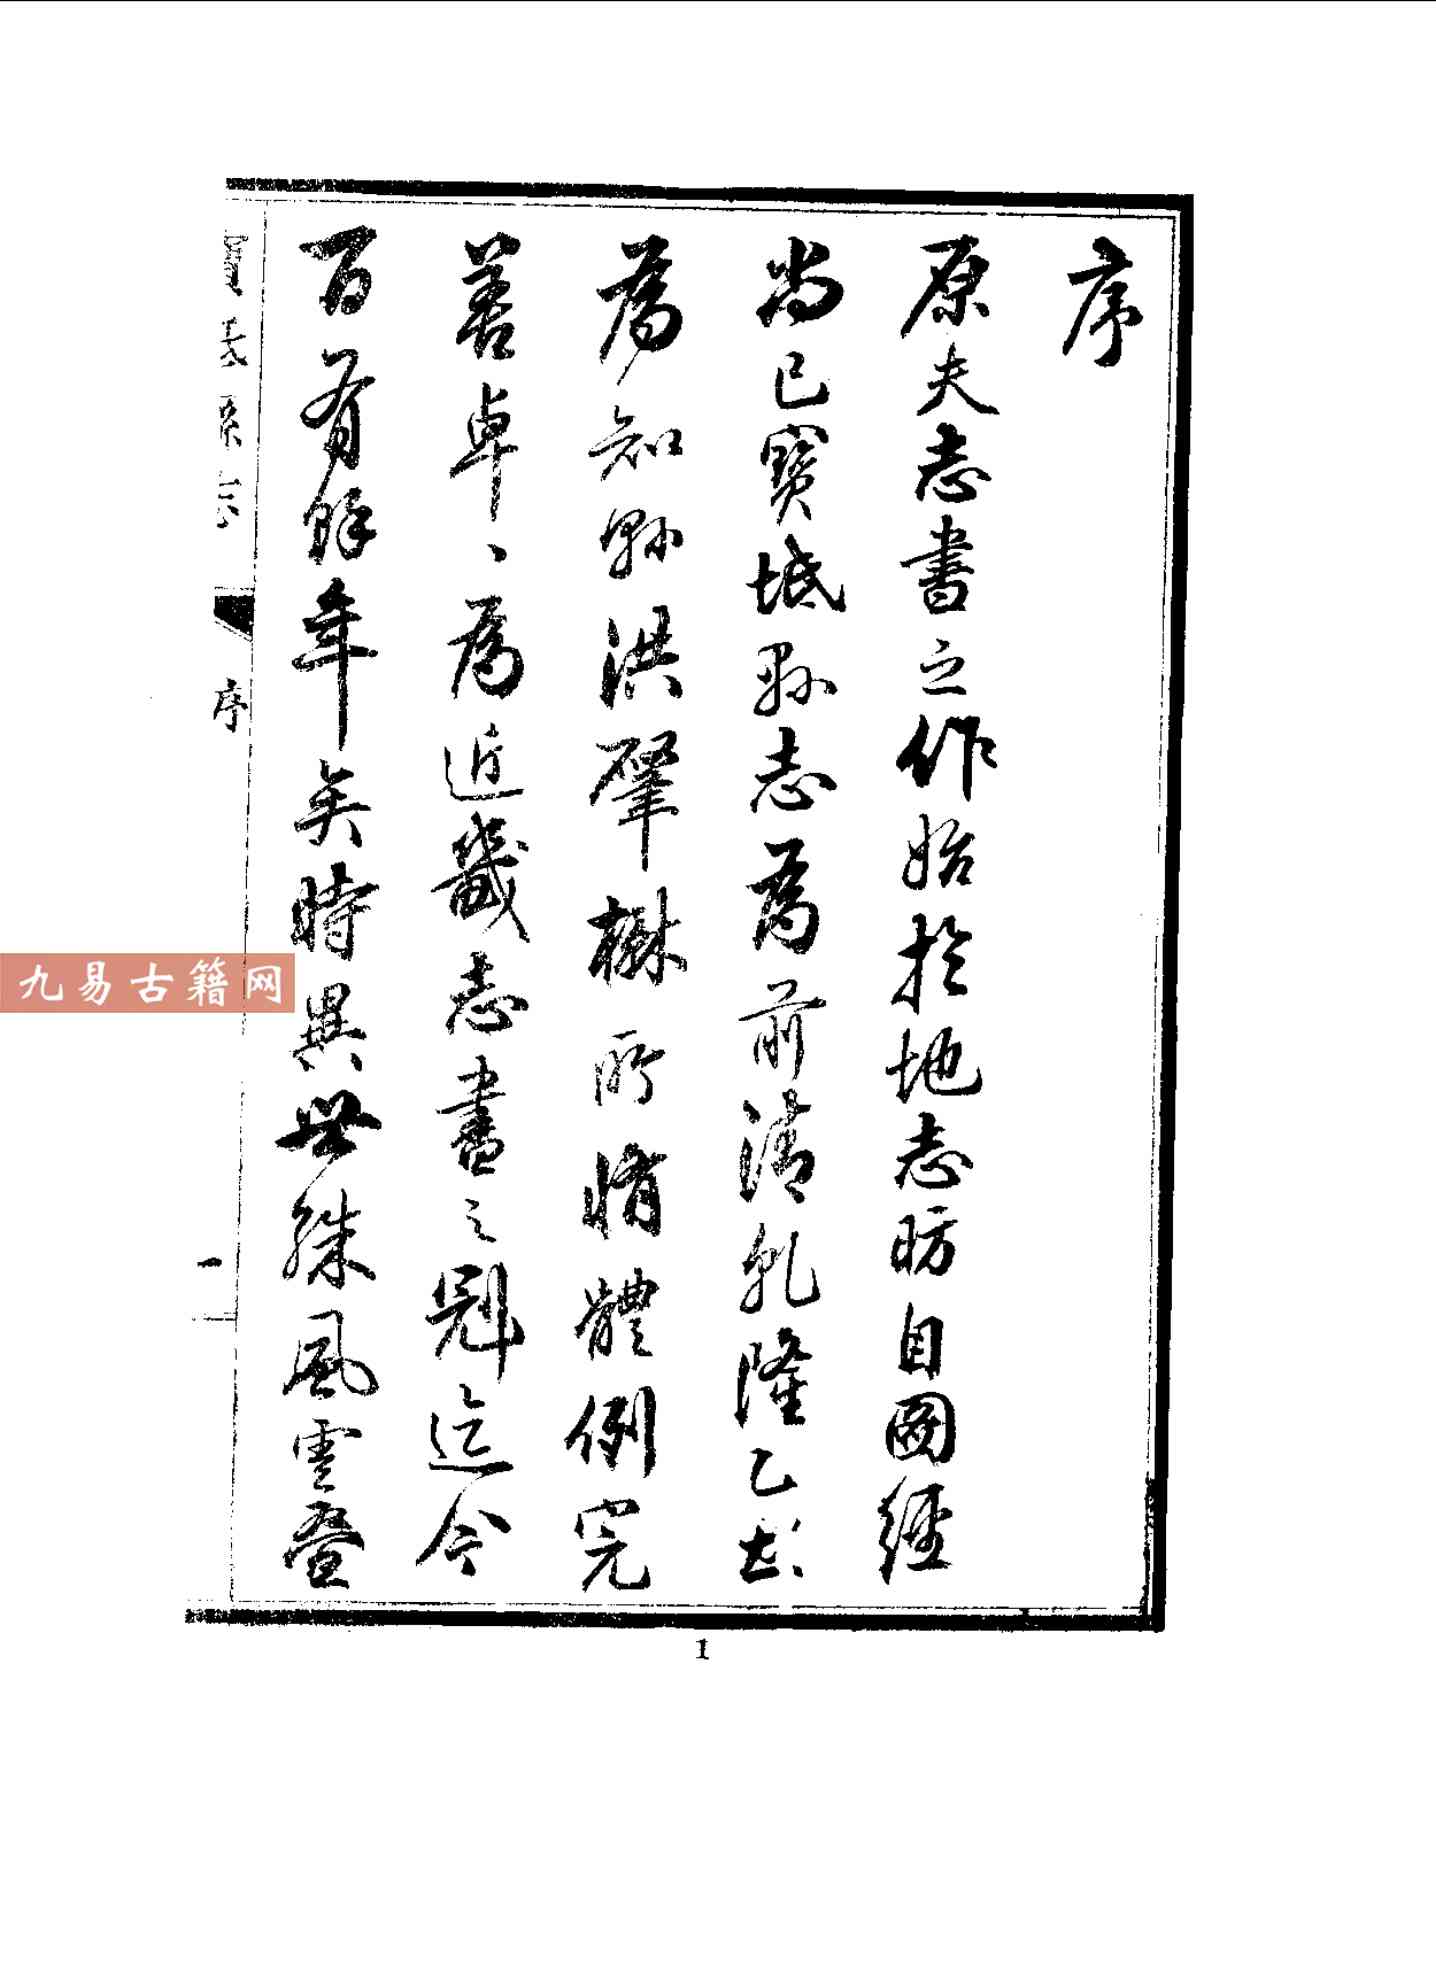 序
原夫志書之作始於地志昉自圖經
尚已寶坻縣志為前清乾隆乙
為知縣洪肇楙所脩體例完
善卓、為近畿志書之冠迄今
百有餘年矣時異世殊風雲疊
寶坻縣志
序
一
九易古籍网
1